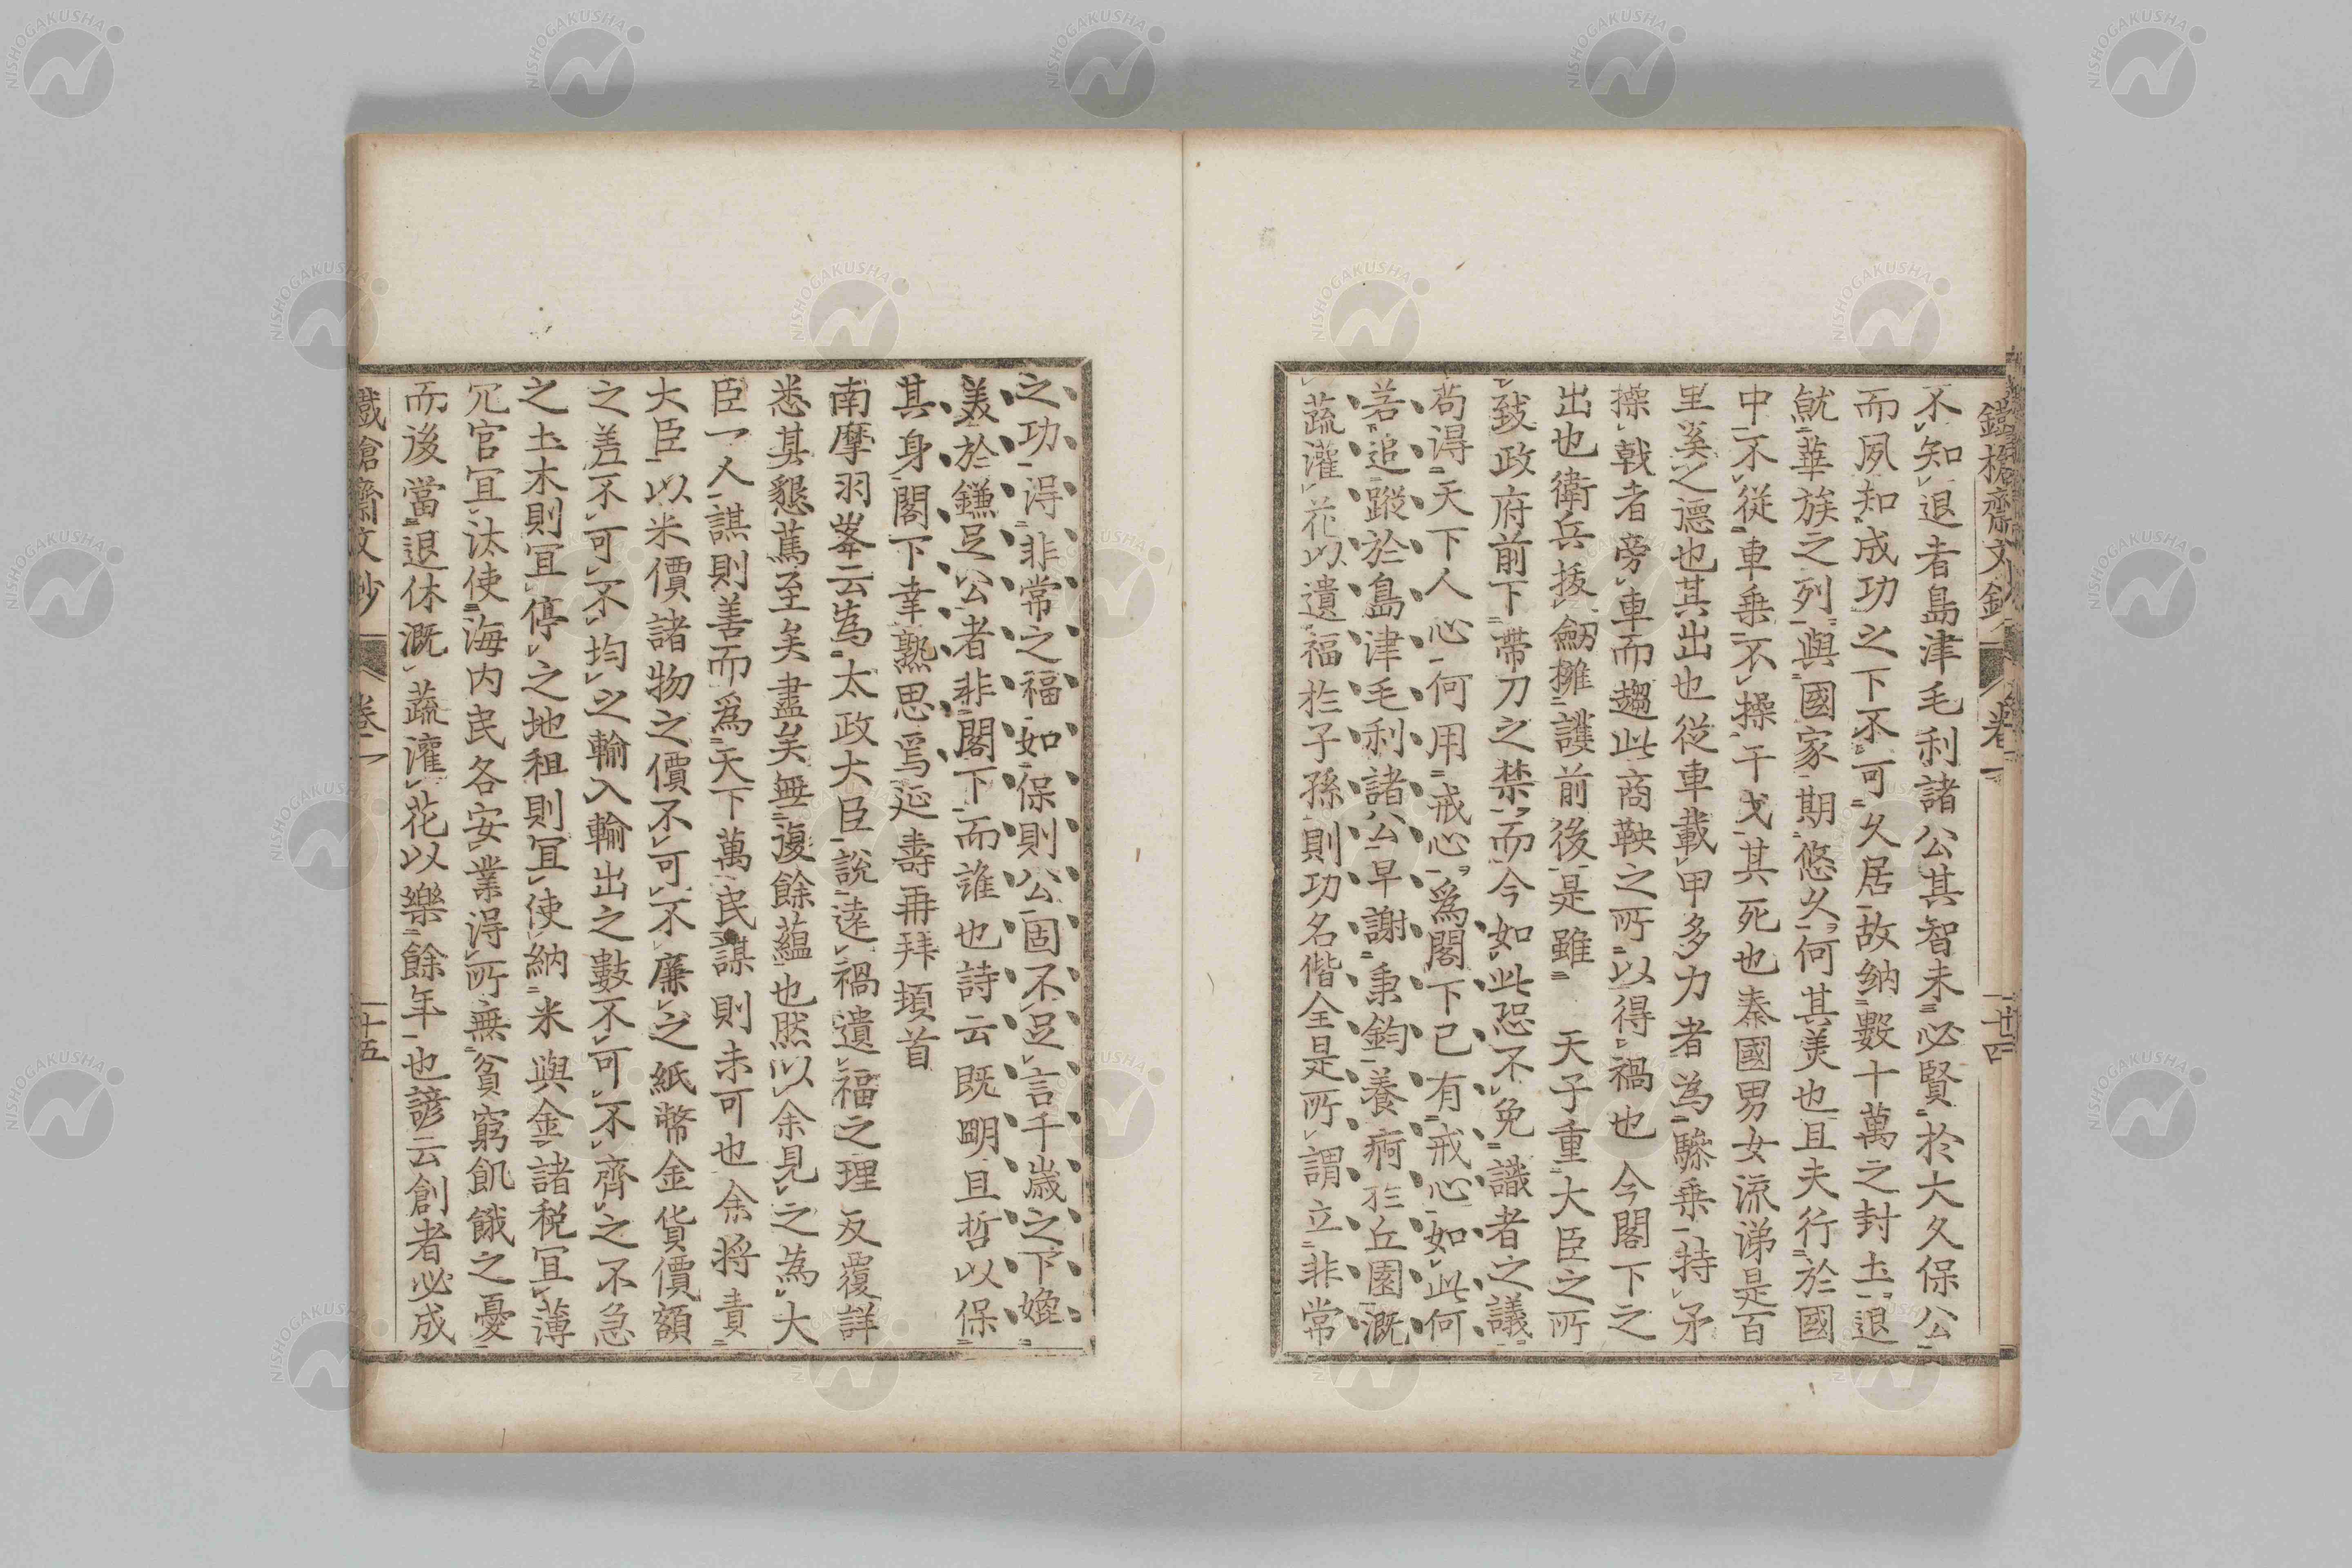 鐵槍齋文鈔 卷一 十四
不知退者島津毛利諸公其智未必賢於大久保公
而夙知成功之下不可久居故納數十萬之封土退
就華族之列與國家期悠久何其美也且夫行於國
中不從車乘不操干戈其死也秦國男女流涕是百
里奚之德也其出也從車載甲多力者為驂乘持矛
操戟者旁車而趨此商鞅之所以得禍也今閣下之
出也衛兵拔劒擁護前後是雖 天子重大臣之所
致政府前下帶刀之禁而今如此恐不免識者之議
苟得天下人心何用戒心爲閣下已有戒心如此何
若追蹤於島津毛利諸公早謝秉鈞養痾於丘園溉
蔬灌花以遺福於子孫則功名偕全是所謂立非常
之功得非常之福如保則公固不足言千歲之下媲
美於鎌足公者非閣下而誰也詩云既明且哲以保
其身閣下幸熟思焉延壽再拜頓首
南摩羽峯云為太政大臣說遠禍遺福之理反覆詳
悉其懇篤至矣盡矣無復餘蘊也然以余見之為大
臣一人謀則善而爲天下萬民謀則未可也余將責
大臣以米價諸物之價不可不廉之紙幣金貨價額
之差不可不均之輸入輸出之數不可不齊之不急
之土木則宜停之地租則宜使納米與金諸税宜薄
冗官宜汰使海内民各安業得所無貧窮飢餓之憂
而後當退休溉蔬灌花以樂餘年也諺云創者必成
鐵槍齋文鈔 卷一 十五
NISHOGAKUSHA